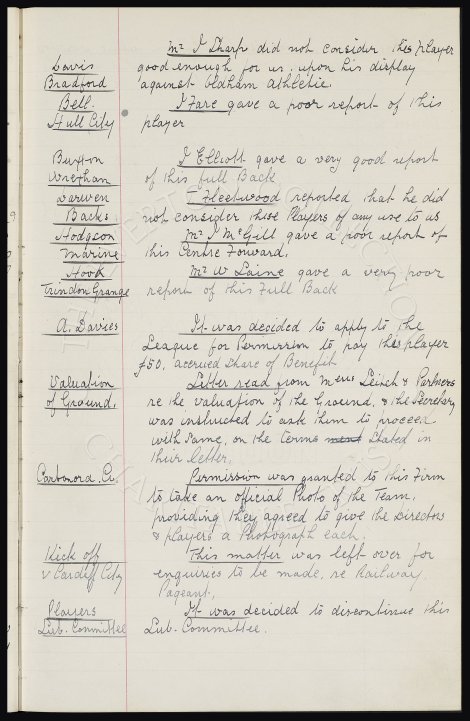 Mr J Sharp did not consider this player
Davis good enough for us. upon his display
Bradford against Oldham Athletic.
Bell. J Fare gave a poor report of this
Hull City player
Burton J Elliott gave a very good report
Wrexham of this full Back
Fleetwood reported, that he did
Backs not consider these Players of any use to us
Hodgson Mr J McGill gave a poor report of
Marine this Centre Forward.
Hook Mr W Laine gave a very poor
Trindon Grange report of this Full Back
A. Davies It was decided to apply to the
League for Permission to pay this player
£50. accrued Share of Benefit
Valuation Letter read from Mess Leinch & Partners
of Ground. re the Valuation of the Ground, & the Secretary
was instructed to ask them to proceed
with same, on the terms stated in
their letter.
Permission was granted to this Firm
to take an official Photo of the Team.
providing they agreed to give the Directors
& players a Photograph each.
Kick off This matter was left over for
v Cardiff City enquiries to be made, re Railway
Pageant.
Players It was decided to discontinue this
Sub. Committee Sub-Committee.